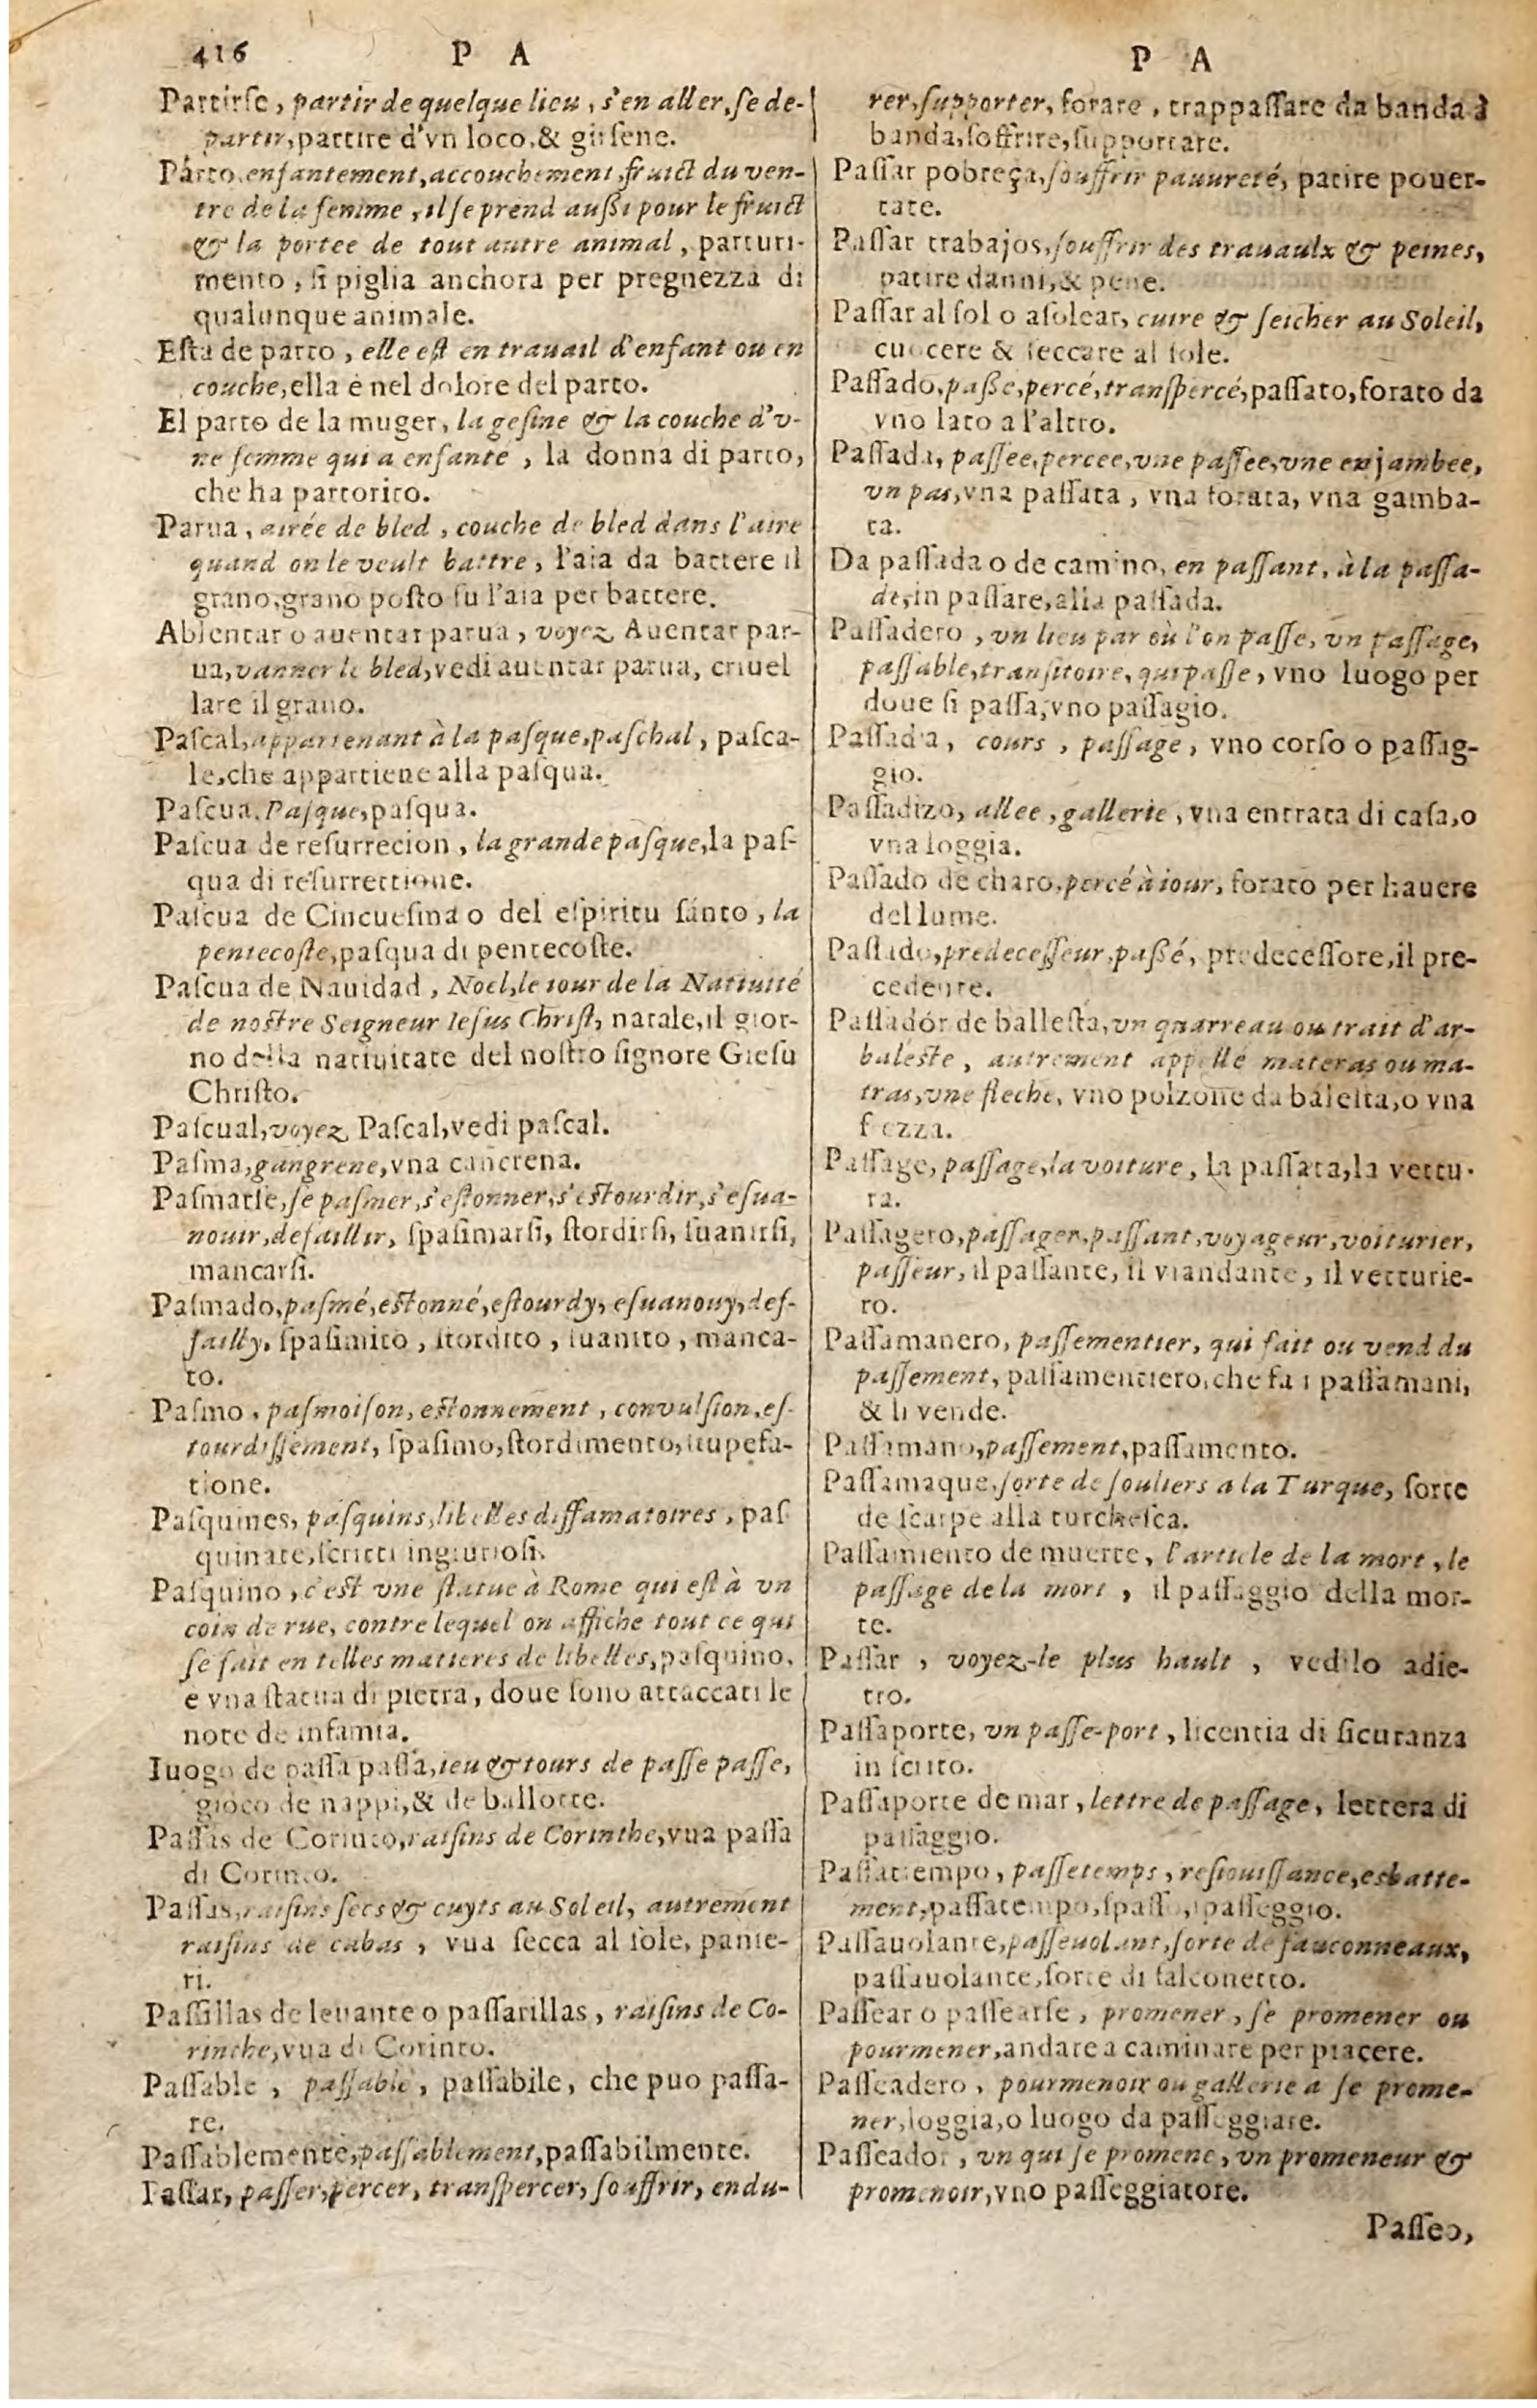 416 P A
Partirse, partir de quelque lieu, s'en aller, se de-
partir, partire d'vn loco, & girsene.
Párto, enfantement, accouchement, fruict du ven-
tre de la femme, il se prend aussi pour le fruict
& la portee de tout autre animal, parturi-
mento, si piglia anchora per pregnezza di
qualunque animale.
Esta de parto, elle est en trauail d'enfant ou en
couche, ella è nel dolore del parto.
El parto de la muger, la gesine & la couche d'v-
ne femme qui a enfanté, la donna di parto,
che ha partorito.
Parua, airée de bled, couche de bled dans l'aire
quand on le veult battre, l'aia da battere il
grano, grano posto su l'aia per battere.
Ablentar o auentar parua, voyez Auentar par-
ua, vanner le bled, vedi auentar parua, criuel
lare il grano.
Pascal, appartenant à la pasque, paschal, pasca-
le, che appartiene alla pasqua.
Pascua, Pasque, pasqua.
Pascua de resurrecion, la grande pasque, la pas-
qua di resurrettione.
Pascua de Cincuesina o del espiritu santo, la
pentecoste, pasqua di pentecoste.
Pascua de Nauidad, Noel, le iour de la Natiuité
de nostre Seigneur Iesus Christ, natale, il gior-
no della natiuitate del nostro signore Giesu
Christo.
Pascual, voyez Pascal, vedi pascal.
Pasma, gangrene, vna cancrena.
Pasmarse, se pasmer, s'estonner, s'estourdir, s'esua-
nouir, defaillir, spasimarsi, stordirsi, suanirsi,
mancarsi.
Pasmado, pasmé, estonné, estourdy, esuanouy, def-
failly, spasimito, stordito, suanito, manca-
to.
Pasmo, pasmoison, estonnement, convulsion, es-
tourdissement, spasimo, stordimento, stupefa-
tione.
Pasquines, pasquins, libelles diffamatoires, pas
quinate, scritti ingiuriosi.
Pasquino, c'est vne statue à Rome qui est à vn
coin de rue, contre lequel on affiche tout ce qui
se fait en telles matieres de libelles, pasquino,
e vna statua di pietra, doue sono attaccati le
note de infamia.
Iuogo de passa passa, ieu & tours de passe passe,
gioco de nappi, & de ballotte.
Passas de Corinto, raisins de Corinthe, vua passa
di Corinto.
Passas, raisins secs & cuyts au Soleil, autrement
raisins de cabas, vua secca al sole, panie-
ri.
Passillas de leuante o passarillas, raisins de Co-
rinthe, vua di Corinto.
Passable, passable, passabile, che puo passa-
re.
Passablemente, passablement, passabilmente.
Passar, passer, percer, transpercer, souffrir, endu-
P A
rer, supporter, forare, trappassare da banda à
banda, soffrire, supportare.
Passar pobreça, souffrir pauureté, patire pouer-
tate.
Passar trabajos, souffrir des trauaulx & peines,
patire danni, & pene.
Passar al sol o asolear, cuire & seicher au Soleil,
cuocere & seccare al sole.
Passado, passé, percé, transpercé, passato, forato da
vno lato a l'altro.
Passada, passee, percee, vne passee, vne enjambee,
vn pas, vna passata, vna forata, vna gamba-
ta.
Da passada o de camino, en passant, à la passa-
de, in passare, alla passada.
Passadero, vn lieu par où l'on passe, vn passage,
passable, transitoire, qui passe, vno luogo per
doue si passa, vno passagio.
Passadia, cours, passage, vno corso o passag-
gio.
Passadizo, allee, gallerie, vna entrata di casa, o
vna loggia.
Passado de charo, percé à iour, forato per hauere
del lume.
Passado, predecesseur, passé, predecessore, il pre-
cedente.
Passadór de ballesta, vn quarreau ou trait d'ar-
baleste, autrement appellé materas ou ma-
tras, vne fleche, vno polzone da balesta, o vna
frezza.
Passage, passage, la voiture, la passata, la vettu-
ra.
Passagero, passager, passant, voyageur, voiturier,
passeur, il passante, il viandante, il vetturie-
ro.
Passamanero, passementier, qui fait ou vend du
passement, passamentiero, che fa i passamani,
& li vende.
Passamano, passement, passamento.
Passamaque, sorte de souliers a la Turque, sorte
de scarpe alla turchesca.
Passamiento de muerte, l'article de la mort, le
passage de la mort, il passaggio della mor-
te.
Passar, voyez-le plus hault, vedilo adie-
tro.
Passaporte, vn passe-port, licentia di sicuranza
in scrito.
Passaporte de mar, lettre de passage, lettera di
passaggio.
Passatiempo, passetemps, resiouissance, esbatte-
ment, passatempo, spasso, passeggio.
Passauolante, passeuolant, sorte de fauconneaux,
passauolante, sorte di falconetto.
Passear o passearse, promener, se promener ou
pourmener, andare a caminare per piacere.
Passeadero, pourmenoir ou gallerie a se prome-
ner, loggia, o luogo da passeggiare.
Passeador, vn qui se promene, vn promeneur &
promenoir, vno passeggiatore.
Passeo,